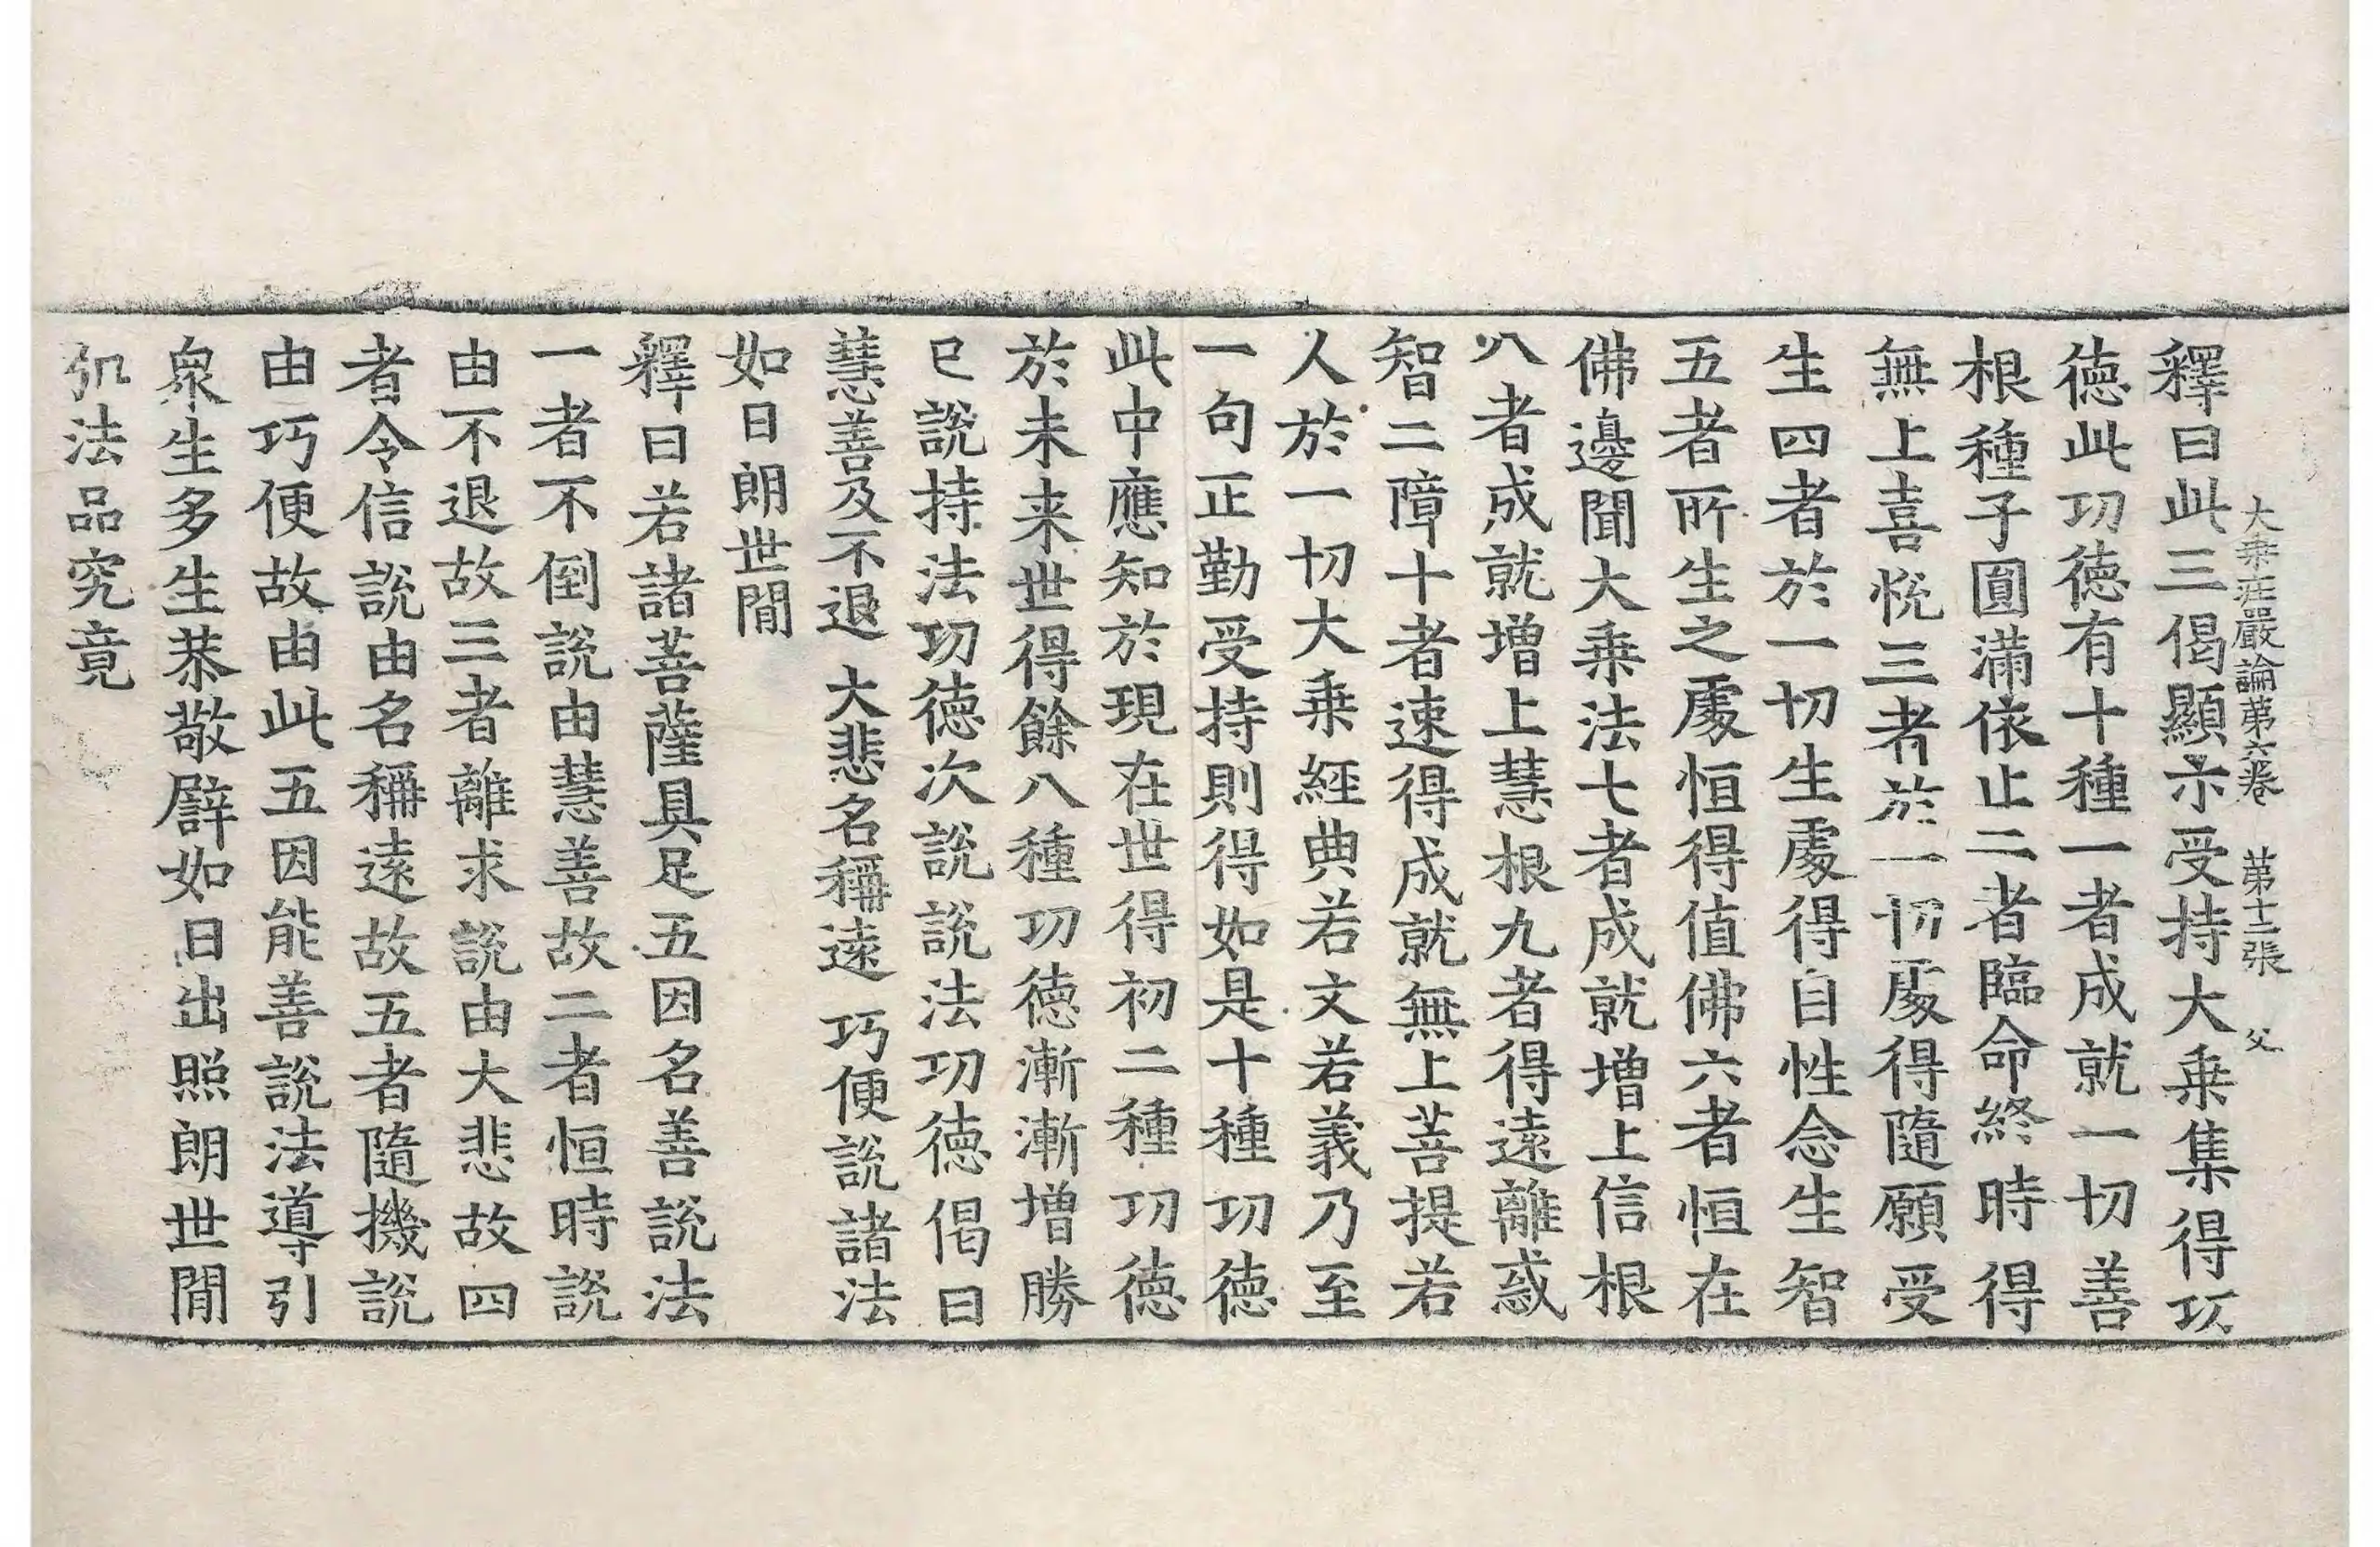 大乘莊嚴論第六卷　第十二張　父
釋曰此三偈顯示受持大乘集得功
德此功德有十種一者成就一切善
根種子圓滿依止二者臨命終時得
無上喜悅三者於一切處得隨願受
生四者於一切生處得自性念生智
五者所生之處恒得值佛六者恒在
佛邊聞大乘法七者成就增上信根
八者成就增上慧根九者得遠離惑
智二障十者速得成就無上菩提若
人於一切大乘經典若文若義乃至
一句正勤受持則得如是十種功德
此中應知於現在世得初二種功德
於未來世得餘八種功德漸漸增勝
已說持法功德次說說法功德偈曰
慧善及不退　大悲名稱遠　巧便說諸法
如日朗世間
釋曰若諸菩薩具足五因名善說法
一者不倒說由慧善故二者恒時說
由不退故三者離求說由大悲故四
者令信說由名稱遠故五者隨機說
由巧便故由此五因能善說法導引
衆生多生恭敬譬如日出照朗世間
弘法品究竟